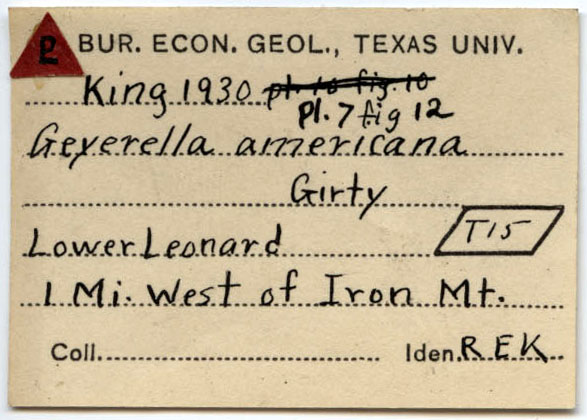 P BUR. ECON. GEOL., TEXAS UNIV.
King 1930 pl. 10 fig. 10
Pl. 7 fig 12
Geyerella americana
Girty
Lower Leonard T15
1 Mi. West of Iron Mt.
Coll. Iden. REK